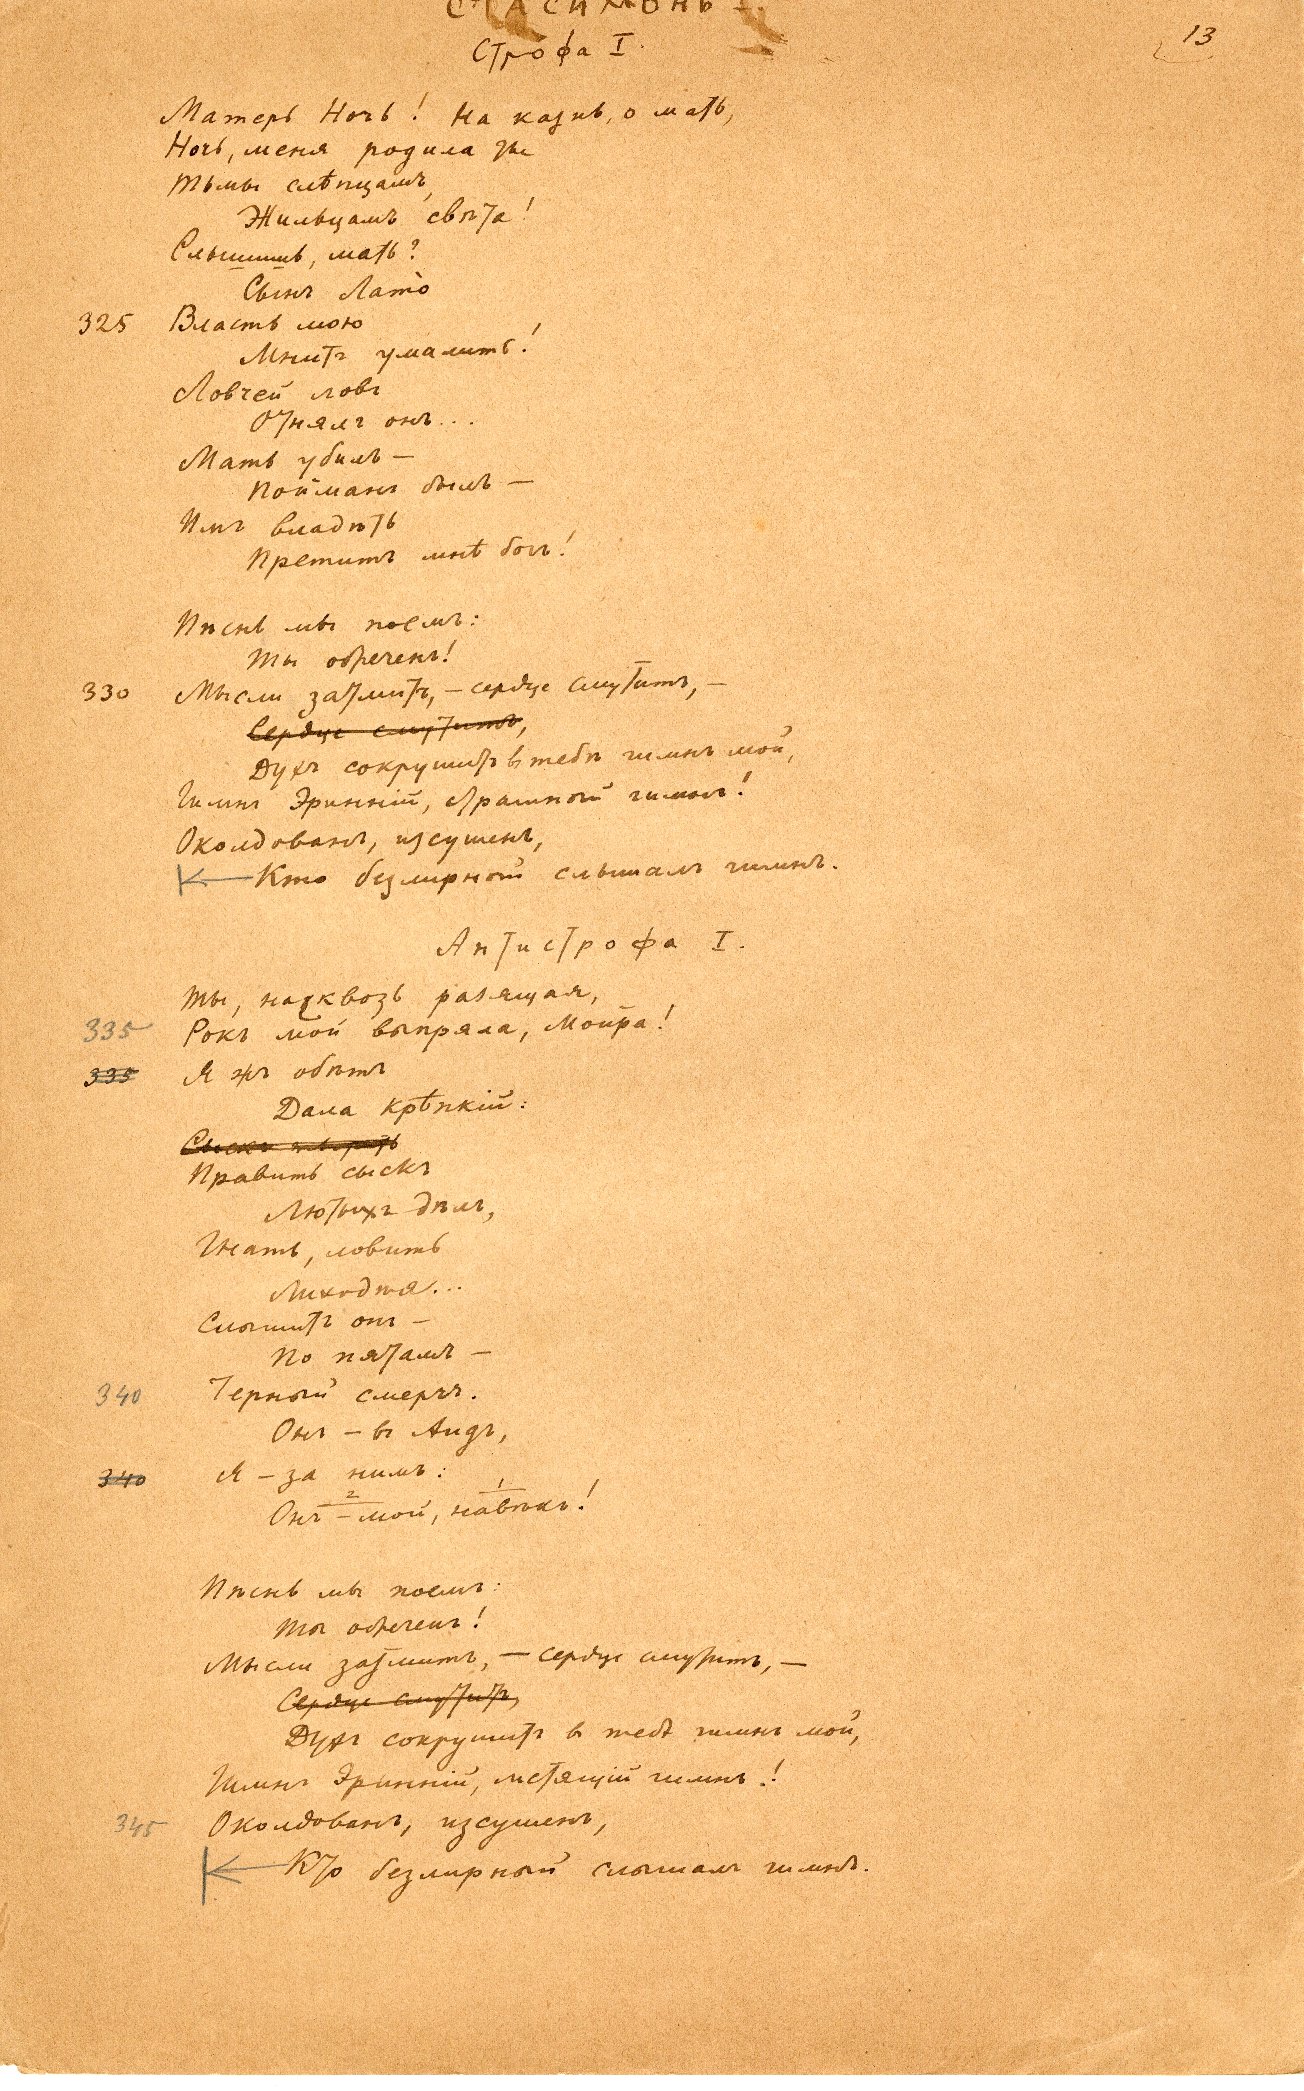 Стасимонъ I.
13
Строфа I.
Матерь Ночь! На казнь, о мать,
Ночь, меня родила ты
Тьмы слѣпцамъ,
Жильцамъ свѣта!
Слышишь, мать?
Сынъ Лато̀
325 Власть мою
Мнитъ умалить!
Ловчей ловъ
Отнялъ онъ...
Мать убилъ —
Пойманъ былъ —
Имъ владѣть
Претитъ мнѣ богъ!
Пѣснь мы поемъ:
Ты обреченъ!
330 Мысли затмитъ, — сердце смутитъ, —
Сердце смутитъ,
Духъ сокрушитъ въ тебѣ гимнъ мой,
Гимнъ Эринній, страшный гимнъ!
Околдованъ, изсушенъ,
Кто безмирный слышалъ гимнъ.
Антистрофа I.
Ты, насквозь разящая,
335 Рокъ мой выпряла, Мойра!
335 Я жъ обѣтъ
Дала крѣпкій:
Сыскъ творить
Править сыскъ
Лютыхъ дѣлъ,
Гнать, ловить
Лиходѣя...
Слышитъ онъ —
По пятамъ —
340 Черный смерчъ.
Онъ — въ Аидъ,
340 Я — за нимъ:
2 1
Онъ — мой, навѣкъ!
Пѣснь мы поемъ:
Ты обреченъ!
Мысли затмитъ, — сердце смутитъ, —
Сердце смутитъ,
Духъ сокрушитъ въ тебѣ гимнъ мой,
Гимнъ Эринній, мстящій гимнъ!
345 Околдованъ, изсушенъ,
Кто безмирный слышалъ гимнъ.